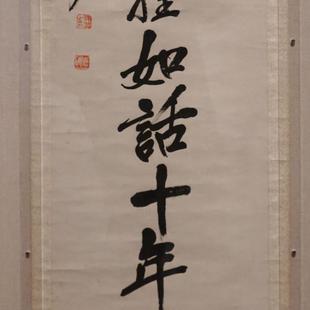 如話十年